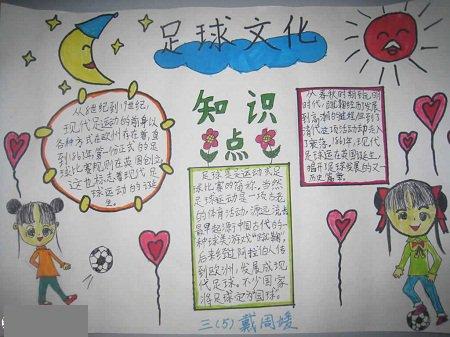 足球文化
从8世纪到19世纪,
现代足运动的前身以
各种方式在欧洲存在着,直
到1863年,第一份正式的足
球比赛规则在英国创立,
这也标志着现代足
球运动的诞
生。
知识
点
足球是足运动或足
球比赛的简称。当然
足球运动是一项古老
的体育活动,源远流长
最早起源于中国古代的一
种球类游戏“蹴鞠”,
后来经过阿拉伯人传
到欧洲,发展成现
代足球。不少国家
将足球定为国球。
从春秋时期到
时代,
到高潮的进程,但到了
清代这项活动却走入
了衰落。1863年,现代
足球运在英国诞生,
揭开足球发展的又一
历史篇章。
三(5)戴周媛